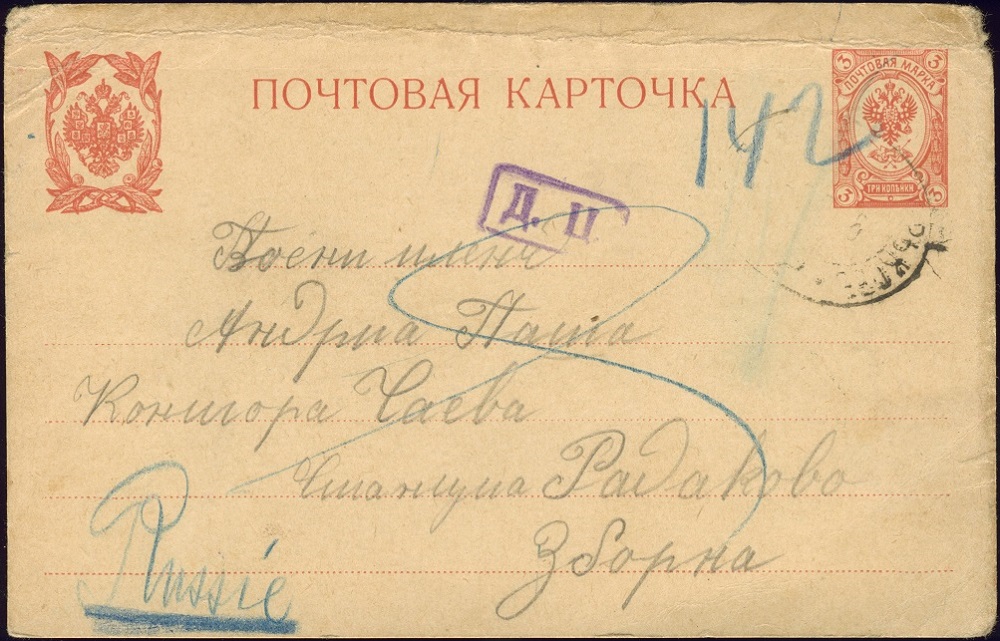 ПОЧТОВАЯ КАРТОЧКА
3 3
ПОЧТОВАЯ МАРКА
3 ТРИ КОПѢЙКИ 3
142
Д. П
Воени плени
Андриа Паша
Контора Чаева
Станциа Радаково
Зборна
Russie